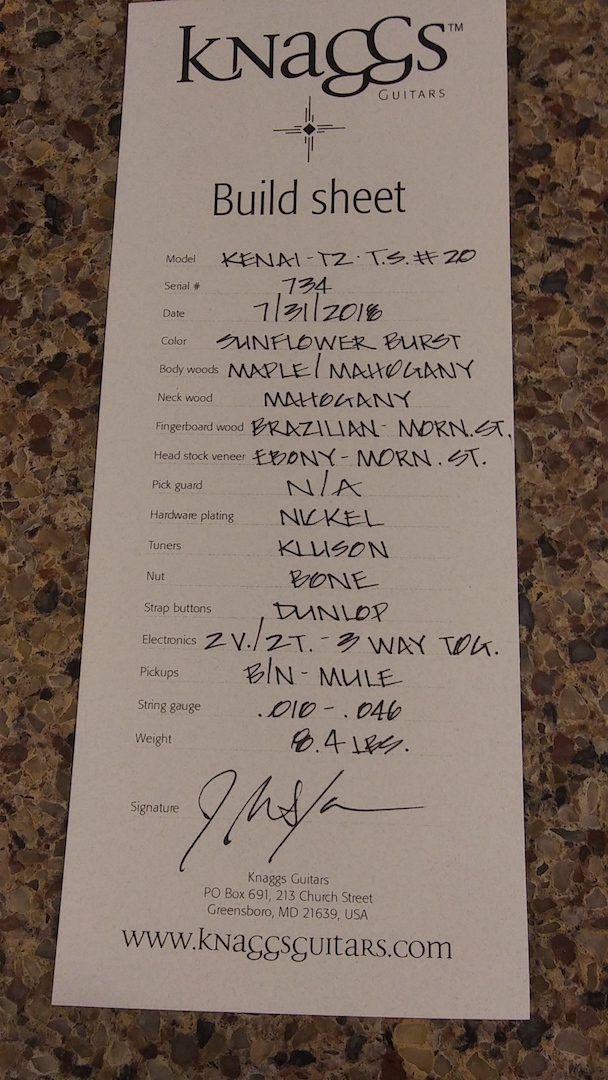 KNAGGS™
GUITARS
Build sheet
Model KENAI-T2·T.S.#20
Serial # 734
Date 7/31/2018
Color SUNFLOWER BURST
Body woods MAPLE/MAHOGANY
Neck wood MAHOGANY
Fingerboard wood BRAZILIAN-MORN.ST.
Head stock veneer EBONY-MORN.ST.
Pick guard N/A
Hardware plating NICKEL
Tuners KLUSON
Nut BONE
Strap buttons DUNLOP
Electronics 2V./2T.-3 WAY TOG.
Pickups B/N-MULE
String gauge .010-.046
Weight 8.4 LBS.
Signature
Knaggs Guitars
PO Box 691, 213 Church Street
Greensboro, MD 21639, USA
www.knaggsguitars.com